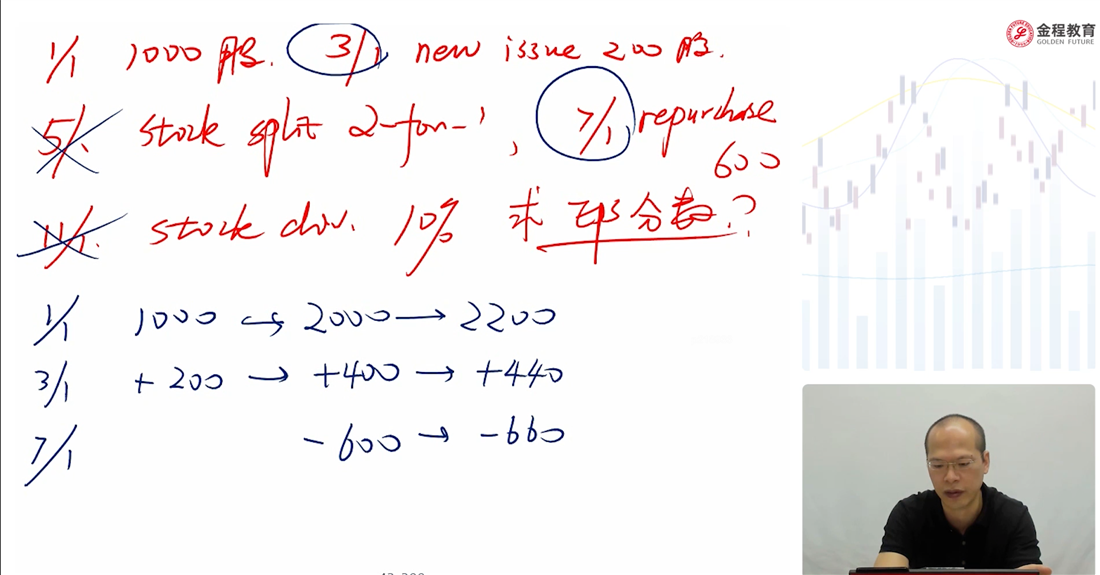 金程教育
GOLDEN FUTURE
1/1 1000股. 3/1 new issue 200股.
5/1. stock split 2-for-1, 7/1 repurchase 600
11/1. stock div. 10% 求 EPS 分母?
1/1 1000 → 2000 → 2200
3/1 +200 → +400 → +440
7/1 -600 → -660